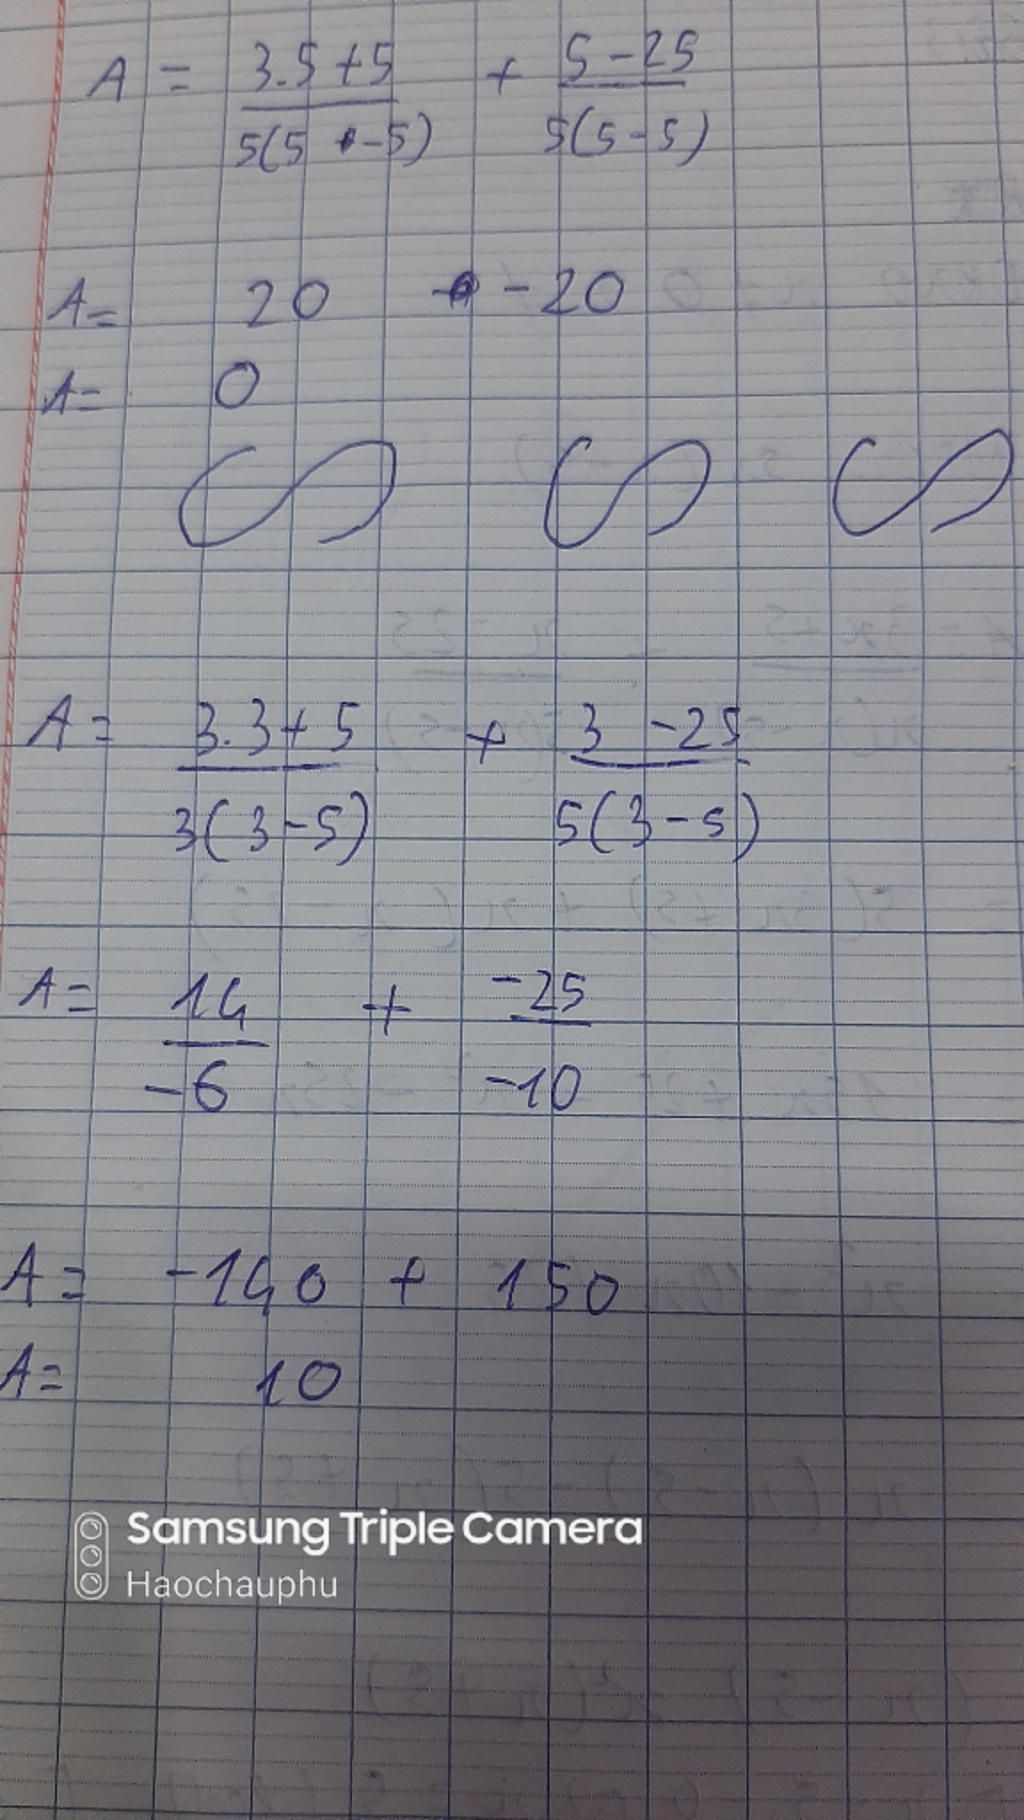 A = 3.5+5 / 5(5 - 5) + 5-25 / 5(5-5)
A= 20 - 20
A= 0
A= 3.3+5 / 3(3-5) + 3 -25 / 5(3-5)
A= 14 / -6 + -25 / -10
A= -140 + 150
A= 10
Samsung Triple Camera
Haochauphu